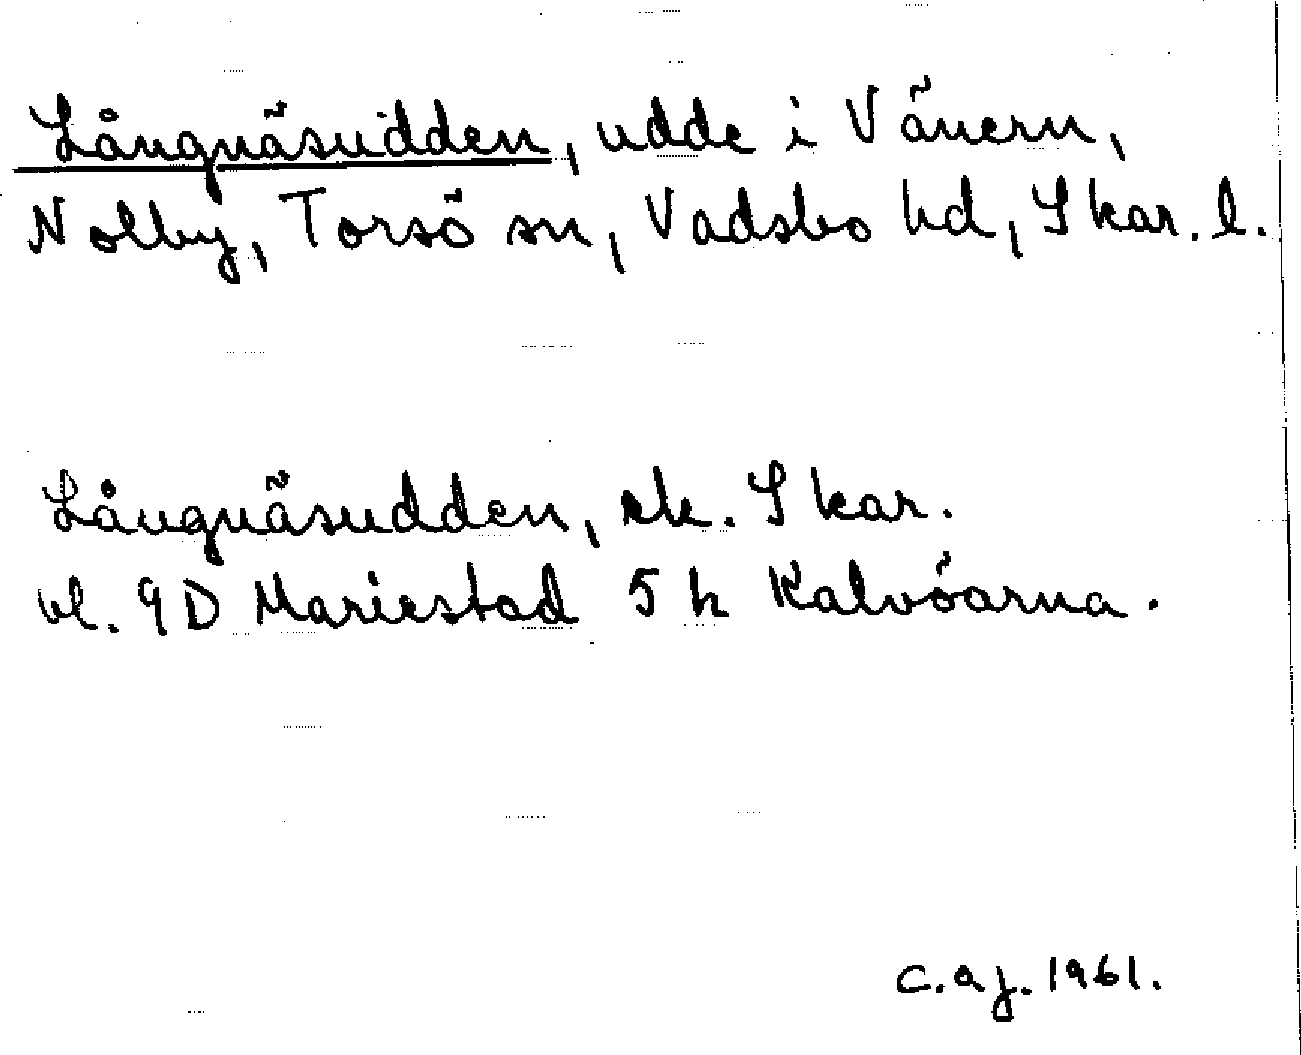 Långnäsudden, udde i Vänern,
Nolby, Torsö sn, Vadsbo hd, Skar. l.
Långnäsudden, ek. Skar.
bl. 9D Mariestad 5 h Kalvöarna.
C.a.j. 1961.